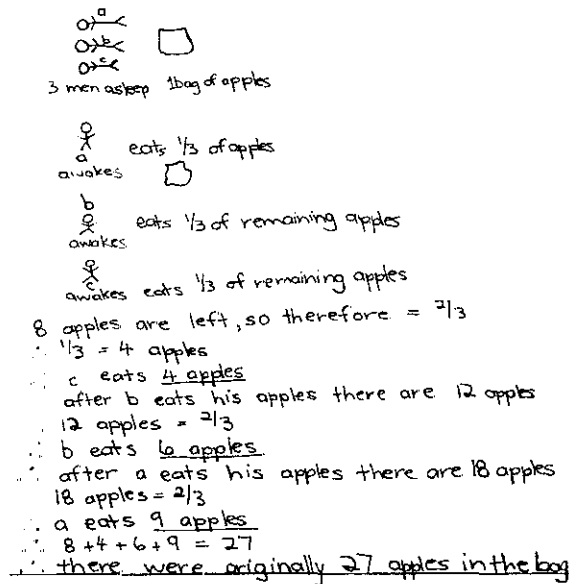 a
b
c
3 men asleep 1 bag of apples
a
awakes eats 1/3 of apples
b
awakes eats 1/3 of remaining apples
c
awakes eats 1/3 of remaining apples
8 apples are left, so therefore = 2/3
∴ 1/3 = 4 apples
∴ c eats 4 apples
after b eats his apples there are 12 apples
∴ 12 apples = 2/3
∴ b eats 6 apples
∴ after a eats his apples there are 18 apples
18 apples = 2/3
∴ a eats 9 apples
∴ 8+4+6+9 = 27
∴ there were originally 27 apples in the bag